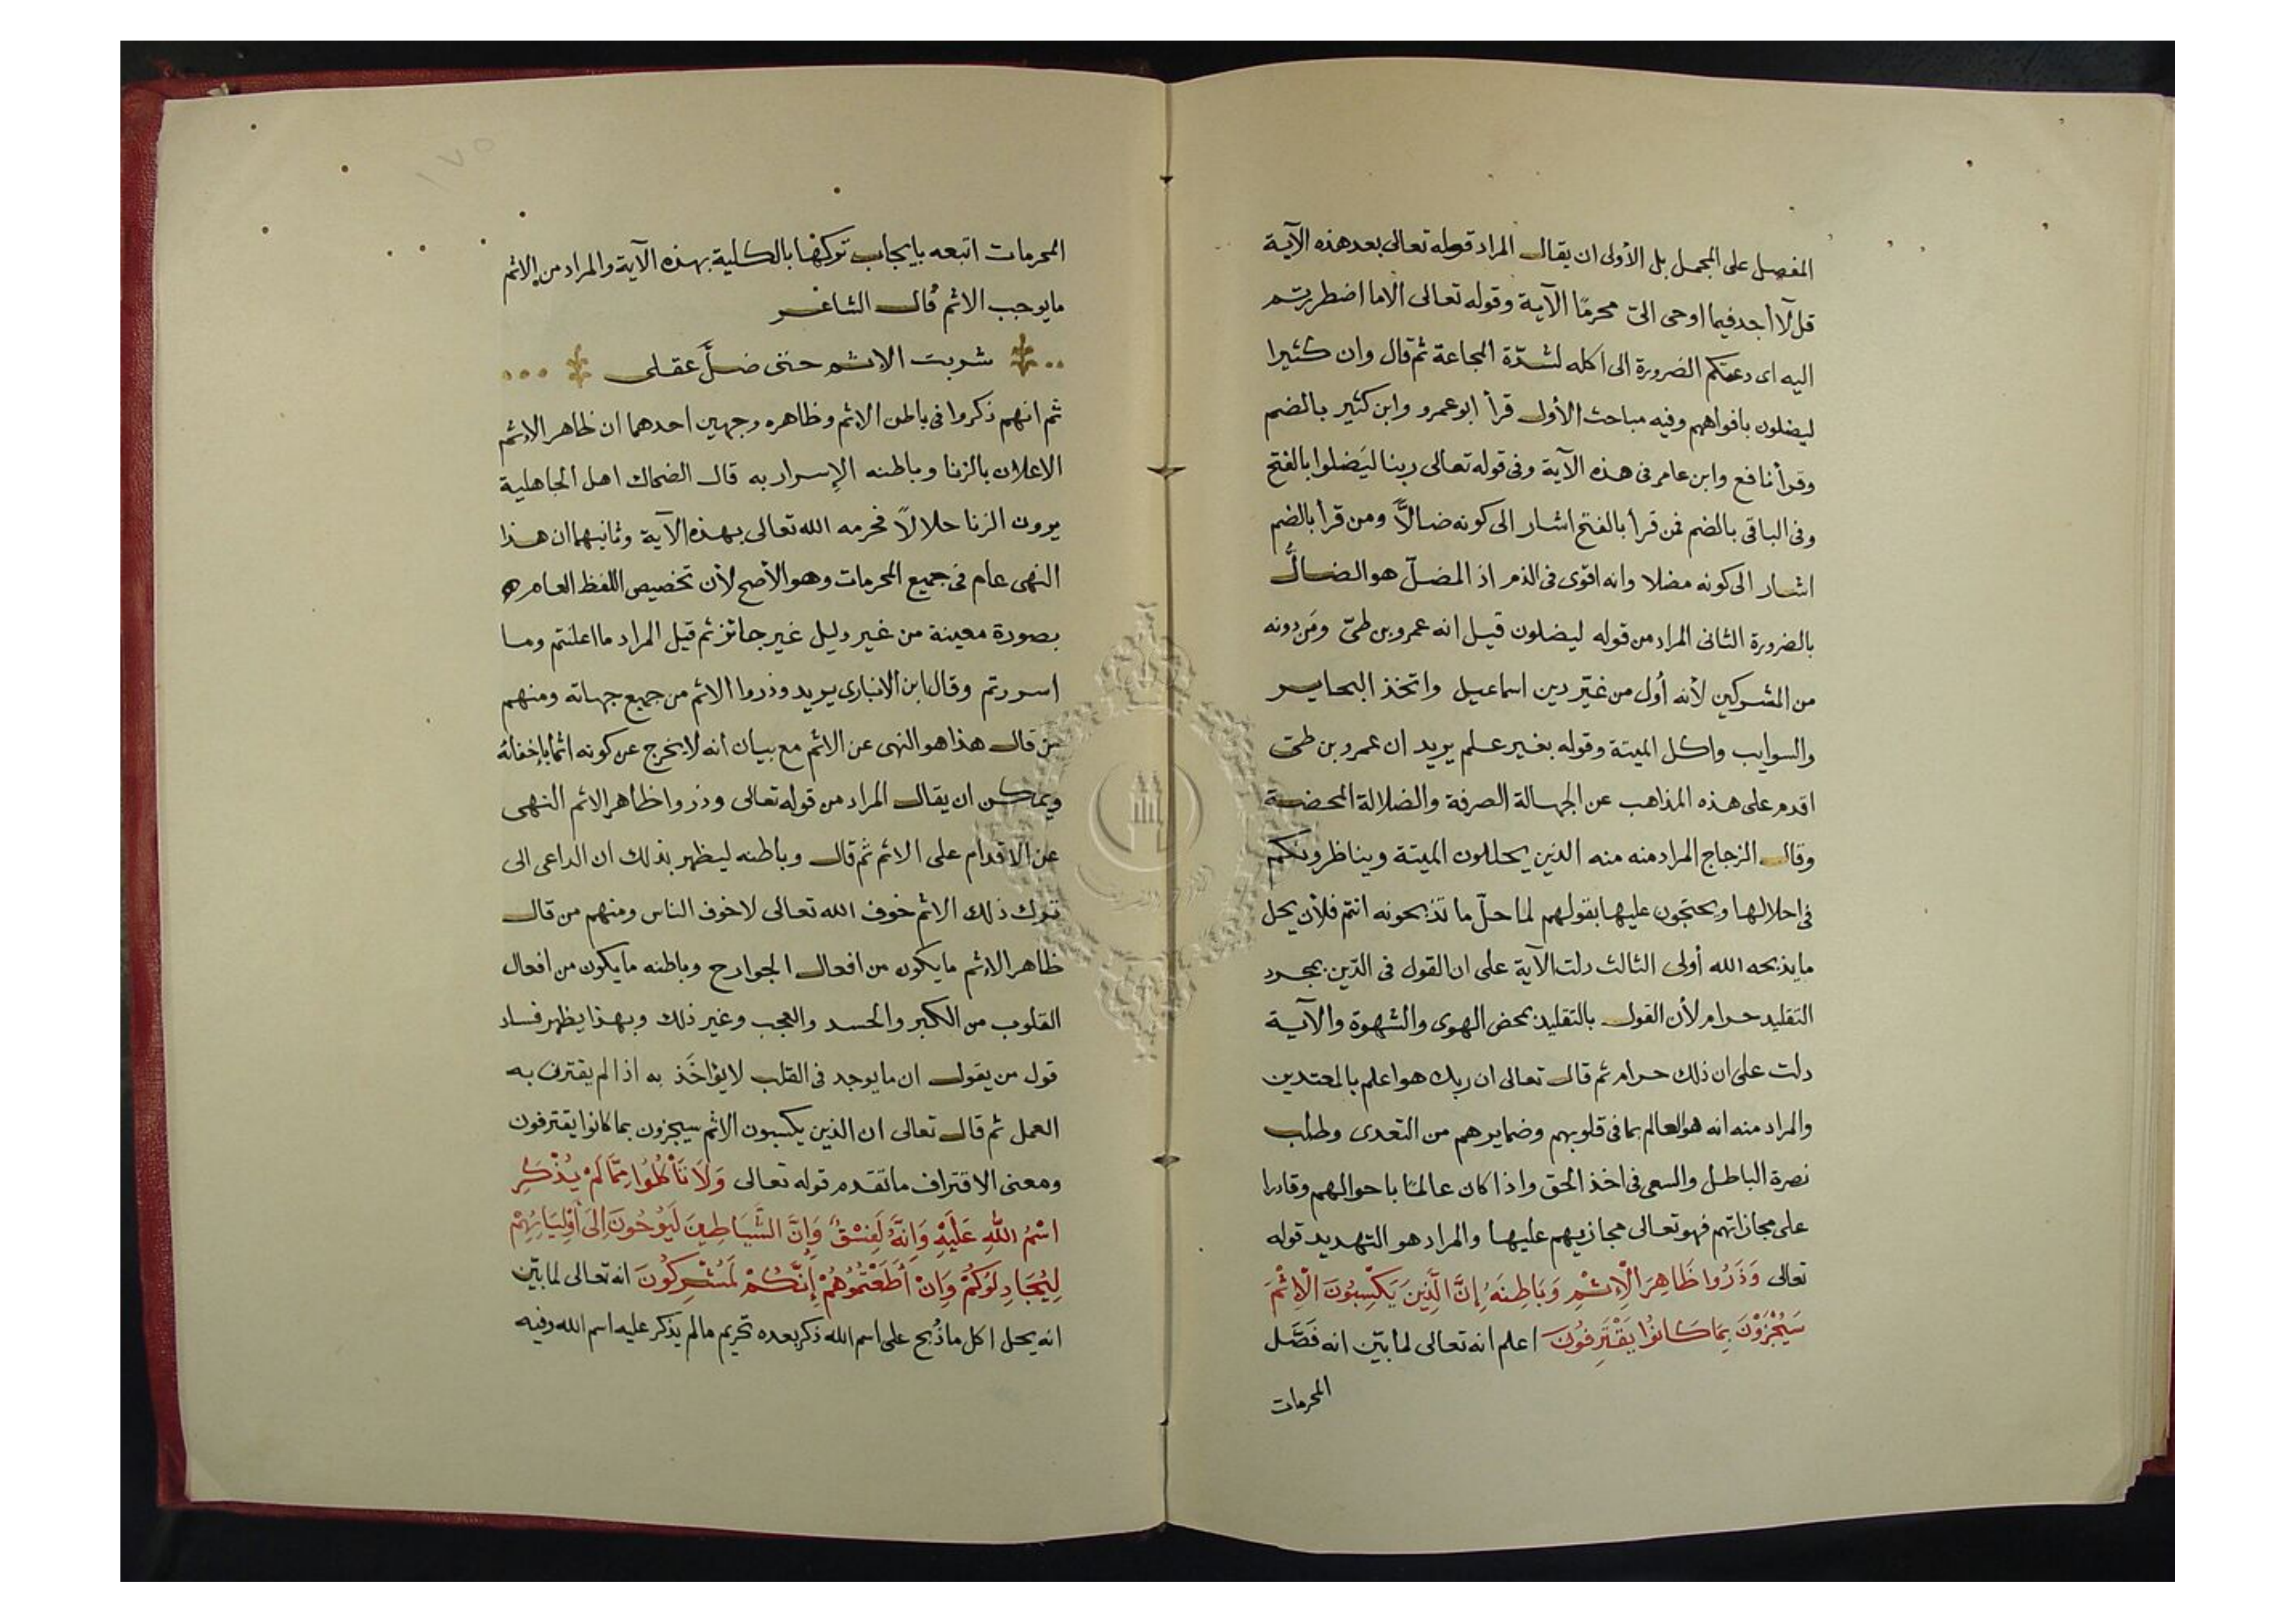 المفصل على المجمل بل الأولى ان يقال المراد قوله تعالى بعد هذه الآية
قل لآ أجد فيما اوحى الىّ محرمًا الآية وقوله تعالى الاما اضطررتم
اليه اى دعتكم الضرورة الى اكله لشدّة المجاعة ثم قال وان كثيرا
ليضلون بافواههم وفيه مباحث الأول قرأ ابو عمرو وابن كثير بالضم
وقرأ نافع وابن عامر فى هذه الآية وفى قوله تعالى ربنا ليَضلوا بالفتح
وفى الباقى بالضم فمن قرأ بالفتح اشار الى كونه ضالاًّ ومن قرأ بالضم
اشار الى كونه مضلا وانه اقوى فى الذم اذ المضلّ هو الضالُّ
بالضرورة الثانى المراد من قوله ليضلون قيل انه عمرو بن طىّ ومَن دونه
من المشركين لأنه أول من غيّر دين اسماعيل واتخذ البحاير
والسوايب واكل الميتة وقوله بغير علم يريد ان عمرو بن طىّ
اقدم على هذه المذاهب عن الجهالة الصرفة والضلالة المحضة
وقال الزجاج المراد منه منه الذين يحللون الميتة ويناظرونكم
فى احلالها ويحتجون عليها بقولهم لما حلّ ما تذبحونه انتم فلأن يحل
ما يذبحه الله أولى الثالث دلت الآية على ان القول فى الدّين بمجرد
التقليد حرام لأن القول بالتقليد بمحض الهوى والشهوة والآية
دلت على ان ذلك حرام ثم قال تعالى ان ربك هو اعلم بالمعتدين
والمراد منه انه هو العالم بما فى قلوبهم وضمايرهم من التعدى وطلب
نصرة الباطل والسعى فى اخذ الحق واذا كان عالمًا باحوالهم وقادرا
على مجازاتهم فهو تعالى مجازيهم عليها والمراد هو التهديد قوله
تعالى وَذَرُوا ظَاهِرَ الْإِثْمِ وَبَاطِنَهُ إِنَّ الَّذِينَ يَكْسِبُونَ الْإِثْمَ
سَيُجْزَوْنَ بِمَا كَانُوا يَقْتَرِفُونَ اعلم انه تعالى لما بيّن انه فَصَّل
المحرمات
١٧٥
المحرمات اتبعه بايجاب تركها بالكلية بهذه الآية والمراد من الاثم
ما يوجب الاثم قال الشاعر
شربت الاثم حتى ضلَّ عقلى
ثم انهم ذكروا فى باطن الاثم وظاهره وجهين احدهما ان ظاهر الاثم
الاعلان بالزنا وباطنه الإسرار به قال الضحاك اهل الجاهلية
يرون الزنا حلالاً فحرمه الله تعالى بهذه الآية وثانيهما ان هذا
النهى عام فى جميع المحرمات وهو الأصح لأن تخصيص اللفظ العام
بصورة معينة من غير دليل غير جائز ثم قيل المراد ما اعلنتم وما
اسررتم وقال ابن الانبارى يريد وذروا الاثم من جميع جهاته ومنهم
من قال هذا هو النهى عن الاثم مع بيان انه لا يخرج عن كونه اثما بإخفائه
ويمكن ان يقال المراد من قوله تعالى وذروا ظاهر الاثم النهى
عن الاقدام على الاثم ثم قال وباطنه ليظهر بذلك ان الداعى الى
ترك ذلك الاثم خوف الله تعالى لا خوف الناس ومنهم من قال
ظاهر الاثم ما يكون من افعال الجوارح وباطنه ما يكون من افعال
القلوب من الكبر والحسد والعجب وغير ذلك وبهذا يظهر فساد
قول من يقول ان ما يوجد فى القلب لا يؤاخَذ به اذا لم يقترن به
العمل ثم قال تعالى ان الذين يكسبون الاثم سيجزون بما كانوا يقترفون
ومعنى الاقتراف ما تقدم قوله تعالى وَلَا تَأْكُلُوا مِمَّا لَمْ يُذْكَرِ
اسْمُ اللهِ عَلَيْهِ وَإِنَّهُ لَفِسْقٌ وَإِنَّ الشَّيَاطِينَ لَيُوحُونَ إِلَى أَوْلِيَائِهِمْ
لِيُجَادِلُوكُمْ وَإِنْ أَطَعْتُمُوهُمْ إِنَّكُمْ لَمُشْرِكُونَ انه تعالى لما بيّن
انه يحل اكل ما ذُبح على اسم الله ذكر بعده تحريم ما لم يذكر عليه اسم الله وفيه